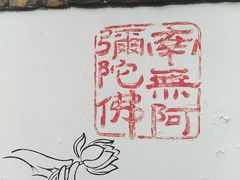 南無阿
彌陀佛